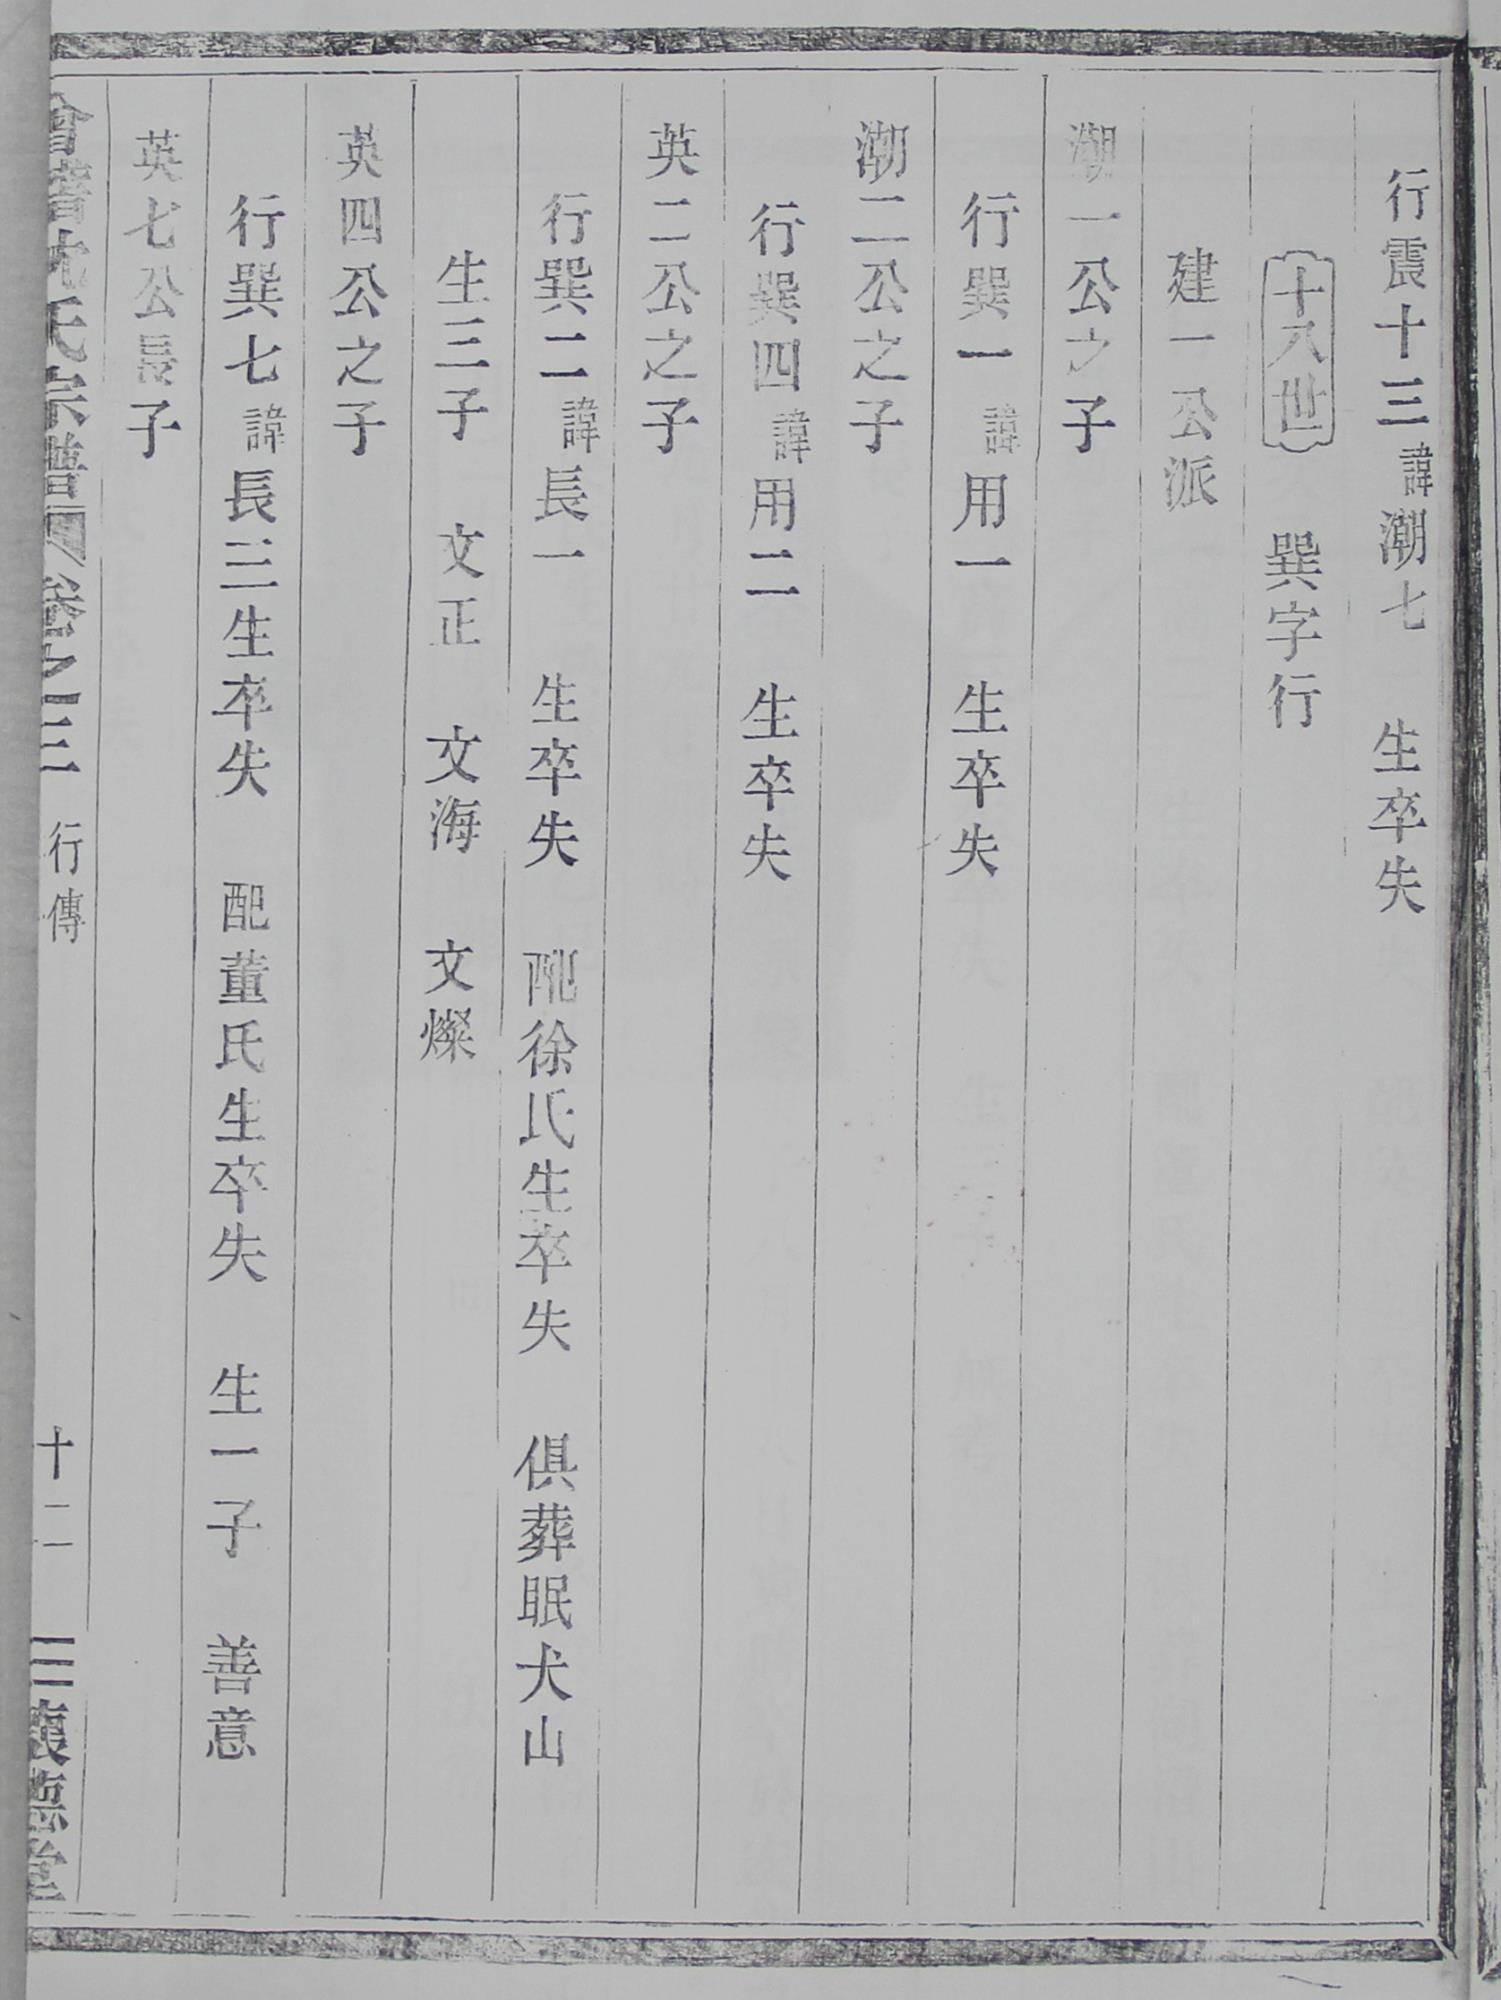 行震十三諱潮七 生卒失
十八世 巽字行
建一公派
潮一公之子
行巽一諱用一 生卒失
潮二公之子
行巽四諱用二 生卒失
英二公之子
行巽二諱長一 生卒失 配徐氏生卒失 俱葬眠犬山
生三子 文正 文海 文燦
英四公之子
行巽七諱長三生卒失 配董氏生卒失 生一子 善意
英七公長子
沈氏宗譜 卷之三 行傳 十二 三德堂